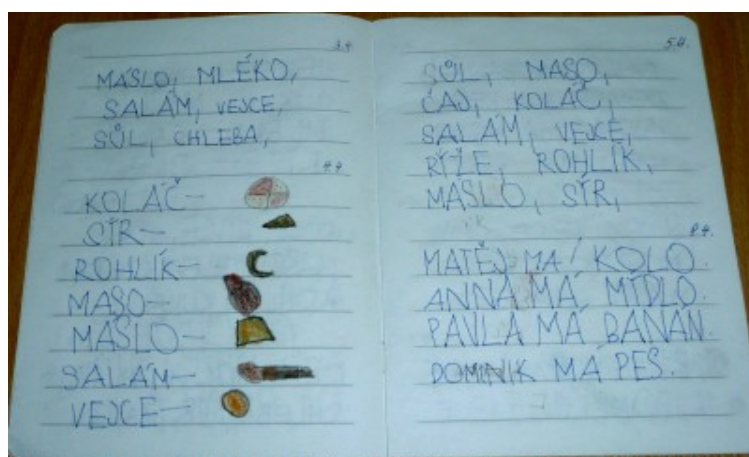 3.4.
MÁSLO, MLÉKO,
SALÁM, VEJCE,
SŮL, CHLEBA,
4.4.
KOLÁČ—
SÍR—
ROHLÍK—
MASO—
MÁSLO—
SALÁM—
VEJCE—
5.4.
SŮL, MASO,
ČAJ, KOLÁČ,
SALÁM, VEJCE,
RÝŽE, ROHLÍK,
MÁSLO, SÍR,
8.4.
MATĚJ MÁ KOLO.
ANNA MÁ MÍDLO.
PAVLA MÁ BANÁN.
DOMINIK MÁ PES.